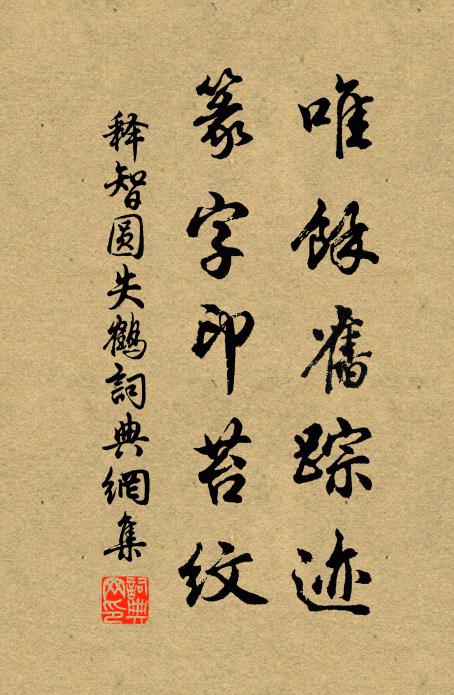 唯餘舊踪迹
篆字印苔纹
释智圆失鶴詞典網集
詞典网印